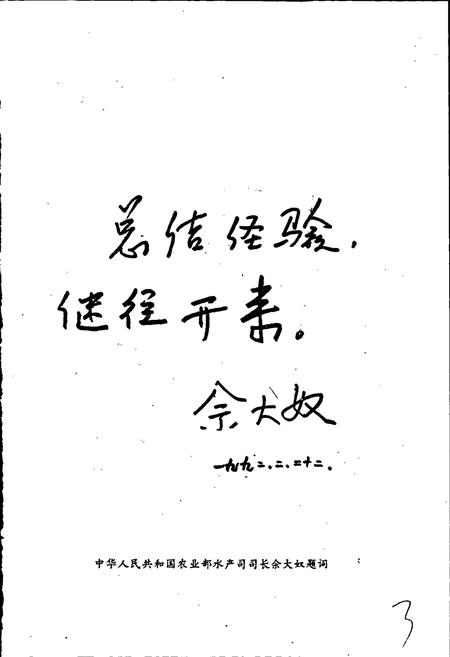 总结经验，
继往开来。
佘大奴
一九九二.二.二十二.
中华人民共和国农业部水产司司长佘大奴题词
3